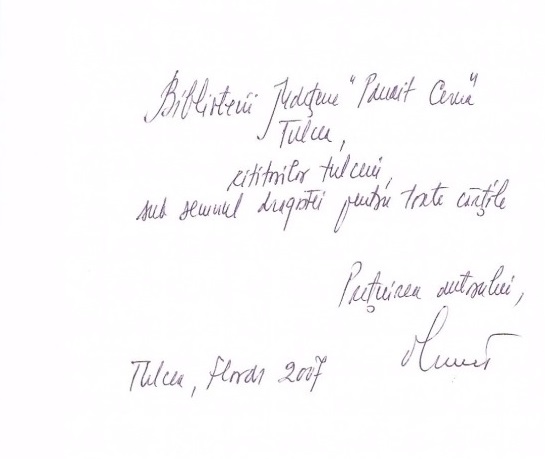 Bibliotecii Județene "Panait Cerna"
Tulcea,
cititorilor tulceni,
sub semnul dragostei pentru toate cărțile
Prețuirea autorului,
Tulcea, 2007